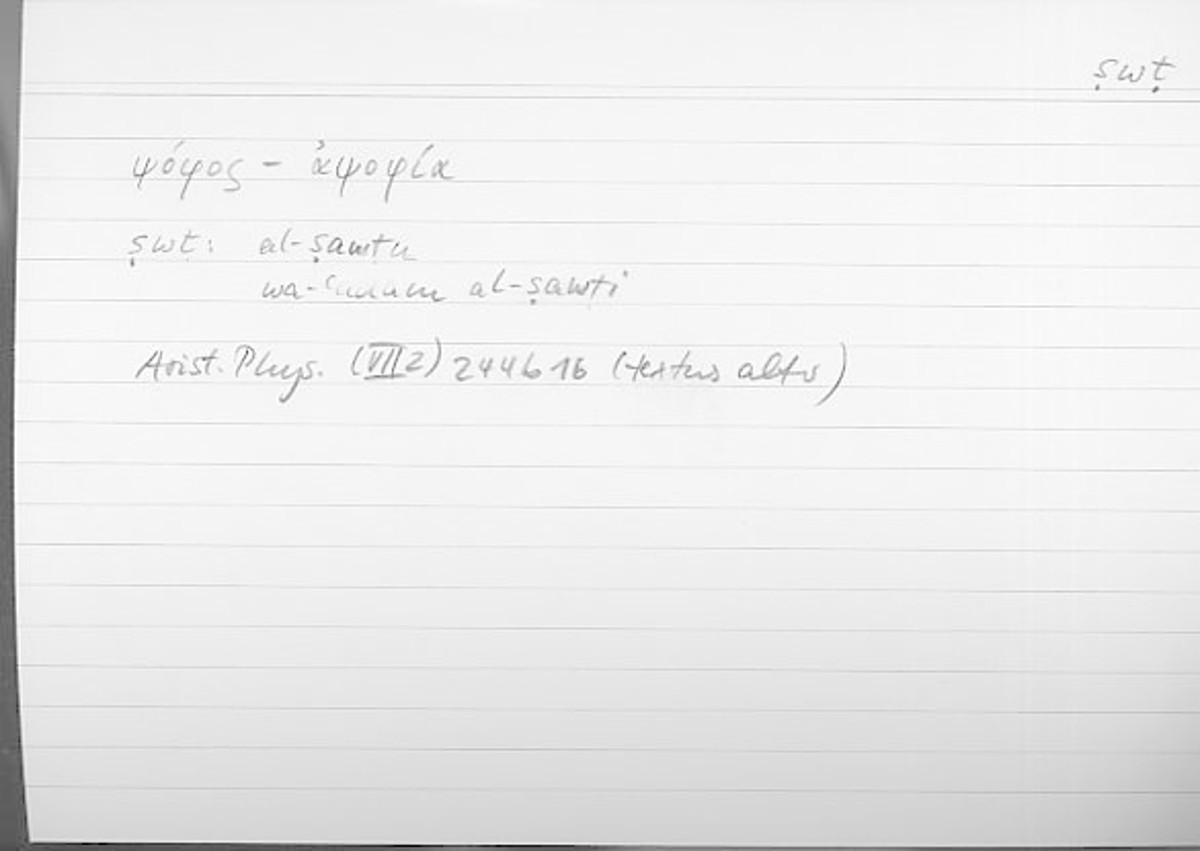 ṣwṭ
ψόφος - ἀψοφία
ṣwt: al-ṣawtu
wa- al-ṣawti
Arist. Phys. (VII 2) 244b16 (textus alter)